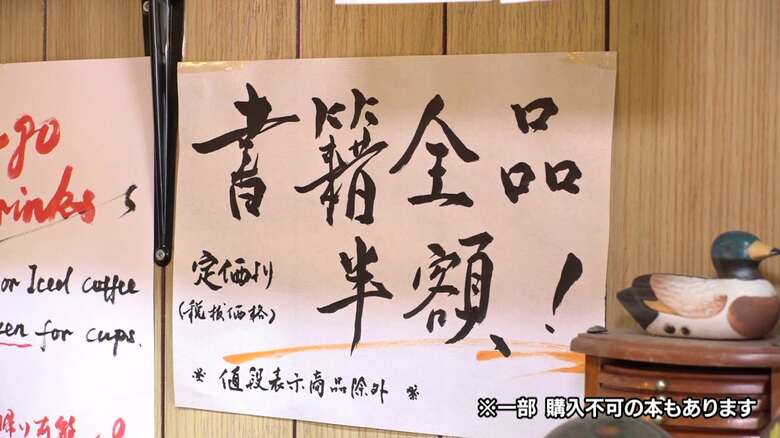 書籍全品
定価より
(税抜価格)
半額、!
※ 値段表示商品除外 ※
-go
rinks
or Iced coffee
en for cups.
※一部 購入不可の本もあります